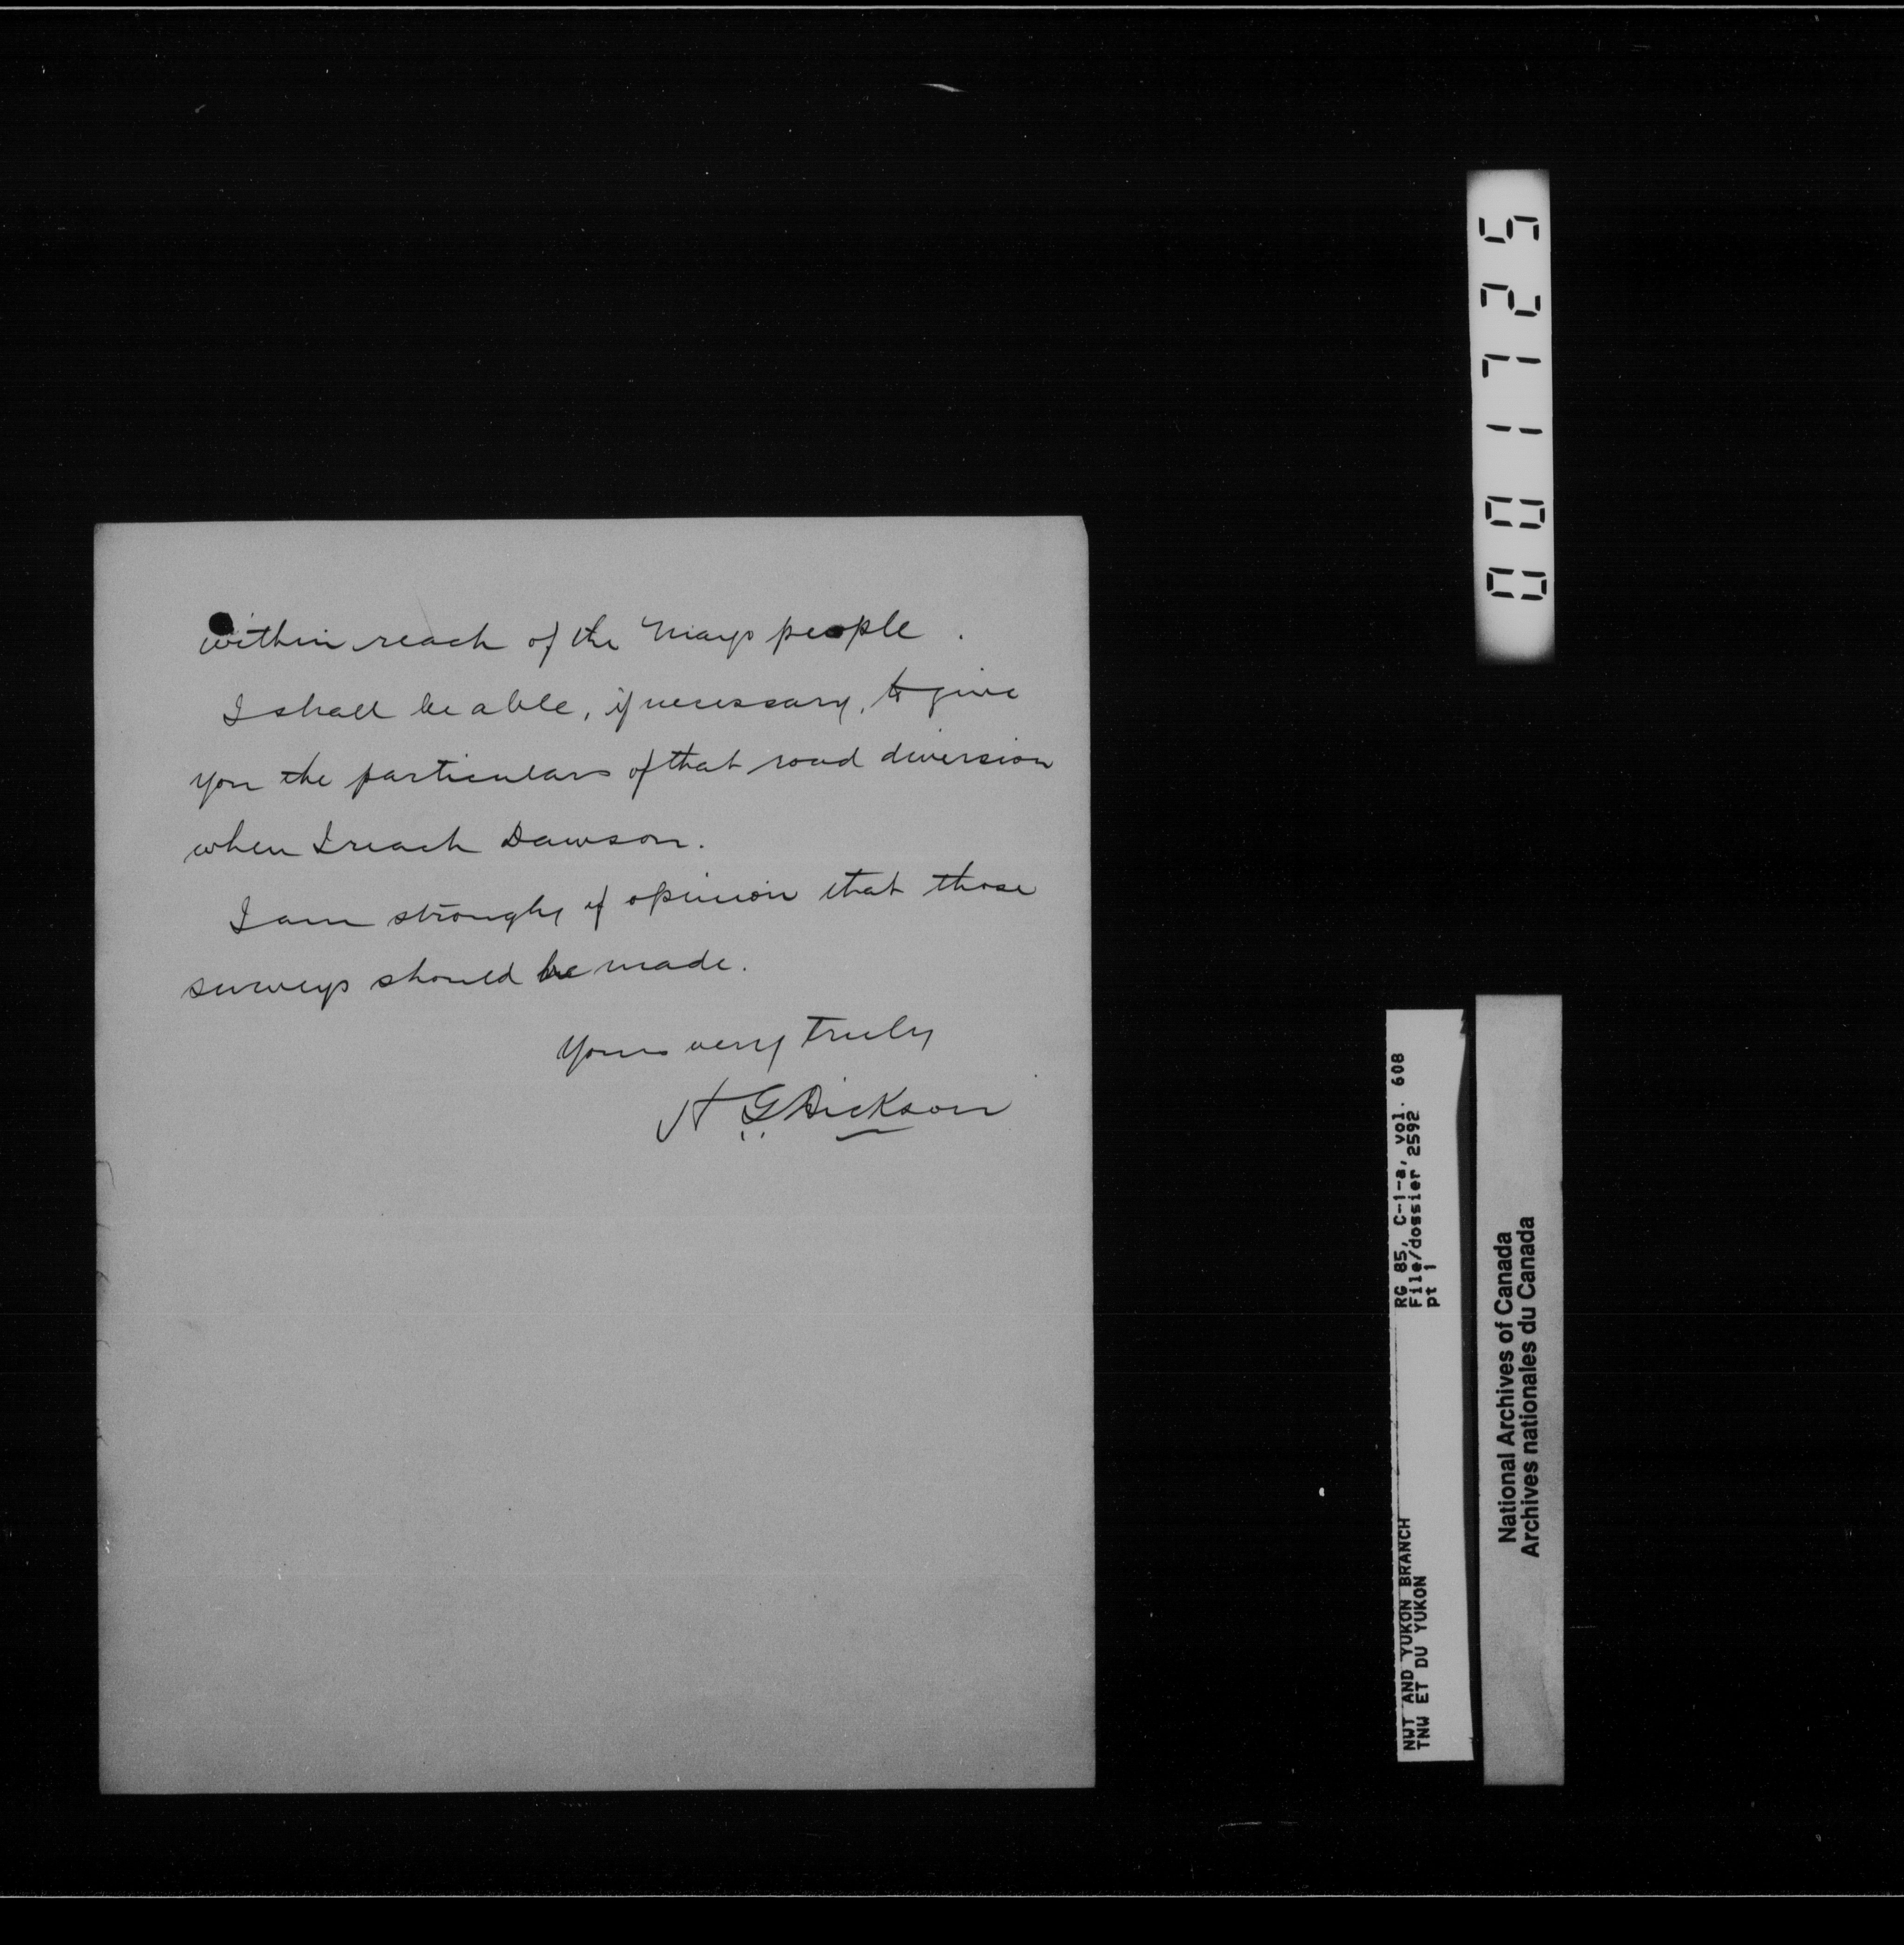 within reach of the Mayo people.
I shall be able, if necessary, to give
you the particulars of that road diversion
when I reach Dawson.
I am strongly of opinion that those
surveys should be made.
Yours very truly
H G Dickson
001725
RG 85, C-1-a, vol. 608
File/dossier 2592
pt 1
NWT AND YUKON BRANCH
TNW ET DU YUKON
National Archives of Canada
Archives nationales du Canada